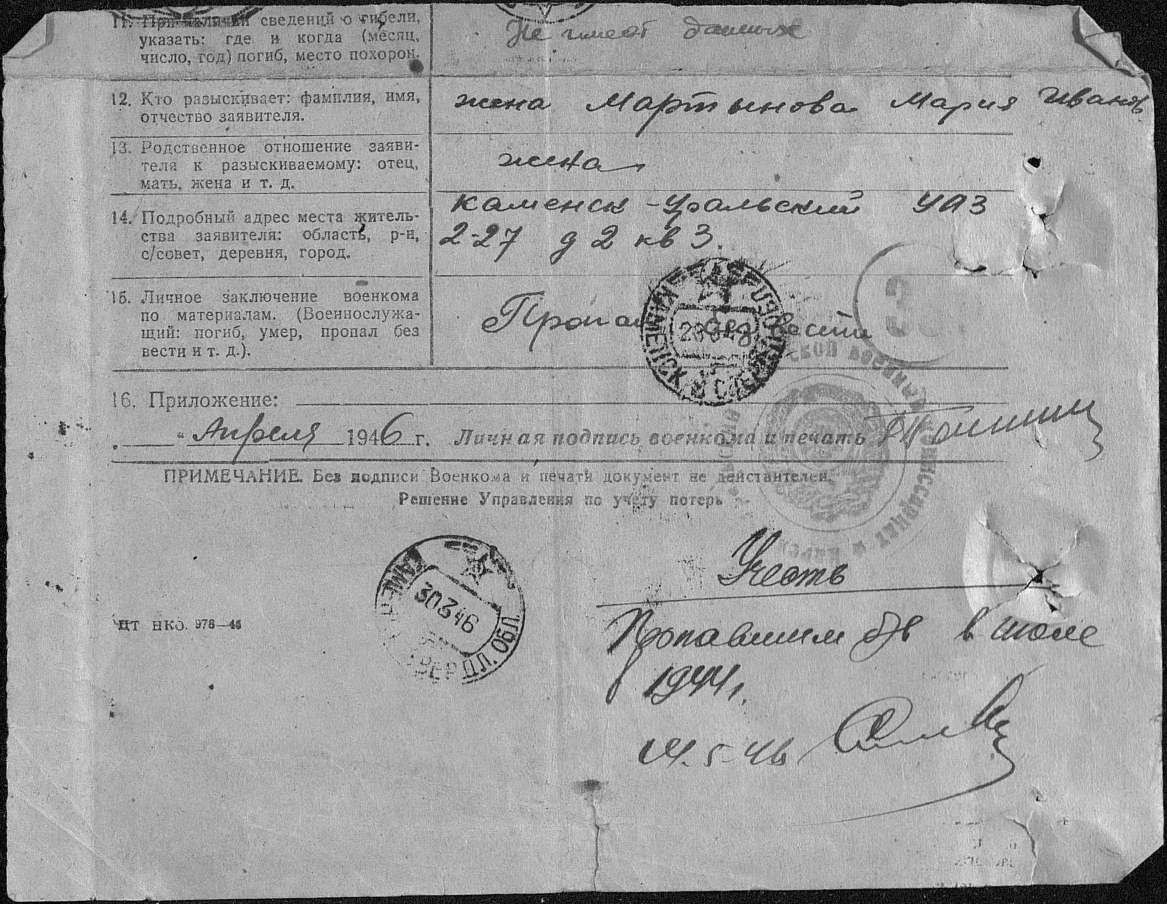 11. При наличии сведений о гибели,
указать: где и когда (месяц,
число, год) погиб, место похорон.
Не имеет данных
12. Кто разыскивает: фамилия, имя,
отчество заявителя.
жена Мартынова Мария Иванов
13. Родственное отношение заяви-
теля к разыскиваемому: отец,
мать, жена и т. д.
жена
14. Подробный адрес места житель-
ства заявителя: область, р-н,
с/совет, деревня, город.
Каменск-Уральский УАЗ
2-27 д 2 кв 3.
15. Личное заключение военкома
по материалам. (Военнослужа-
щий: погиб, умер, пропал без
вести и т. д.).
Пропал без вести
16. Приложение:
" Апреля 1946 г. Личная подпись военкома и печать
ПРИМЕЧАНИЕ. Без подписи Военкома и печати документ не действителен.
Решение Управления по учету потерь
КАМЕНСК
КАМЕН
30346
СВЕРДЛ. ОБЛ.
Учесть
Пропавшим б/в в июле
1944 г.
14.5.46
ЦТ НКО. 978—46